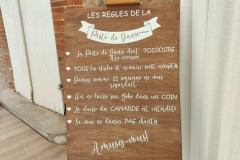 LES REGLES DE LA
Piste de Danse
La Piste de Danse doit TOUJOURS
être occupée
TOUS les styles de danse sont acceptés
Danser comme si personne ne vous
regardait
de bébé dans un COIN
La danse des CANARDS est interdite
Je vous ne dansez PAS chantez
Amusez-vous!